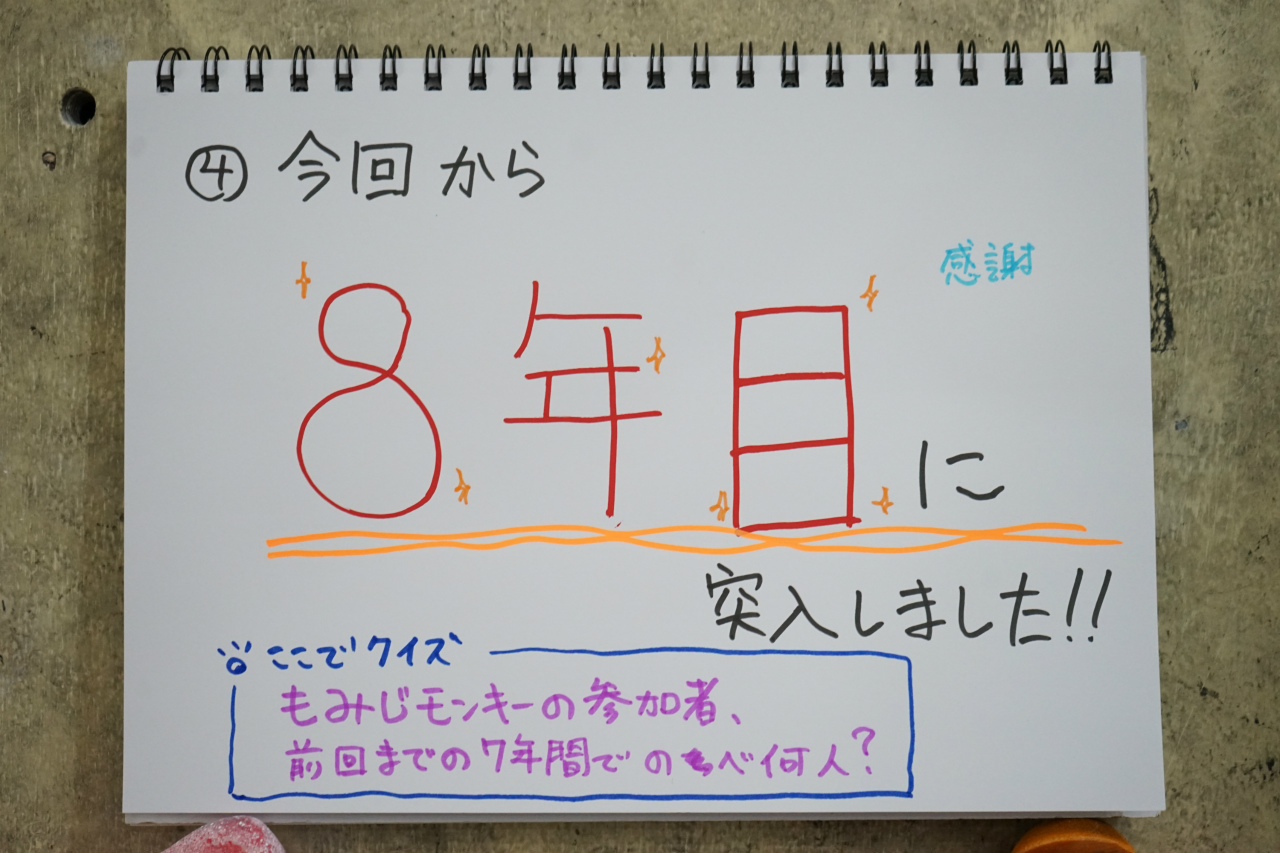 ④ 今回から
感謝
8年目に
突入しました!!
ここでクイズ
もみじモンキーの参加者、
前回までの7年間でのべ何人?